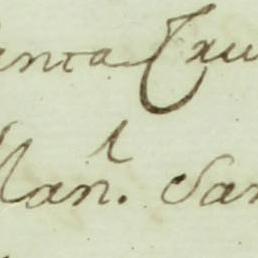 anta Cru
Man.l San